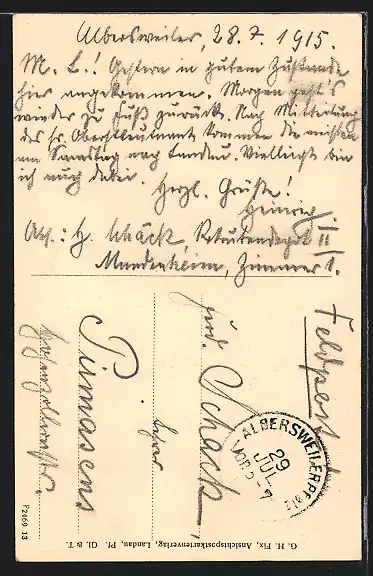 Albersweiler, 28.7.1915.
M. L.! Gestern in gutem Zustande
hier angekommen. Morgen geht's
wieder zu Fuß zurück. Nach Mitteilung
des H. Oberstleutnant kommen die meisten
am Samstag nach Landau. Vielleicht bin
ich auch dabei.
Herzl. Grüße!
Heinrich
Abs.: H. Schäck, Rekrutendepot II
Mundenheim, Zimmer 1.
Feldpost
Schack,
Lehrer
Pirmasens
Hohenzollernstr.
ALBERSWEILER (PFALZ)
29
JUL
G. H. Fix, Ansichtspostkartenverlag, Landau, Pf. Gl. & T.
P2469 13